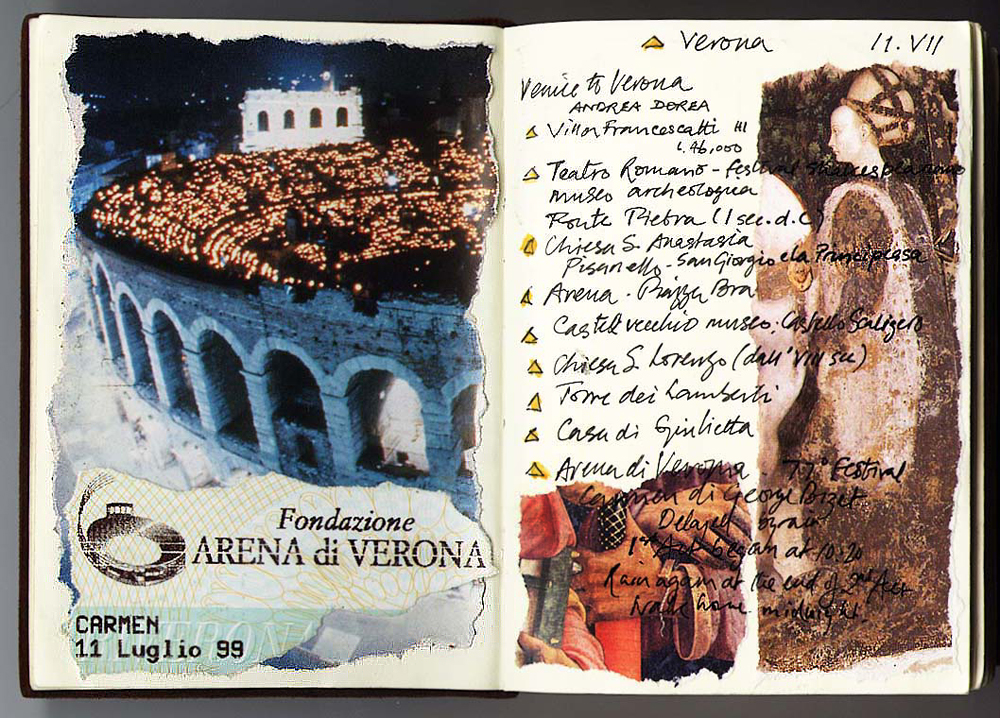 Fondazione
ARENA di VERONA
CARMEN
11 Luglio 99
Verona
11. VII
Venice to Verona
ANDREA DOREA
Villa Francescatti III
L. 46,000
Teatro Romano - festival Shakespeariano
museo archeologica
Ponte Pietra (I sec. d.C)
Chiesa S. Anastasia
Pisanello - San Giorgio e la Principessa
Arena - Piazza Bra
Castelvecchio museo. Castello Scaligero
Chiesa S. Lorenzo (dall' VIII sec)
Torre dei Lamberti
Casa di Giulietta
Arena di Verona. 77° Festival
Carmen di George Bizet
Delayed by rain
1st Act began at 10.20
Rain again at the end of 2nd Act
Walk home midnight.